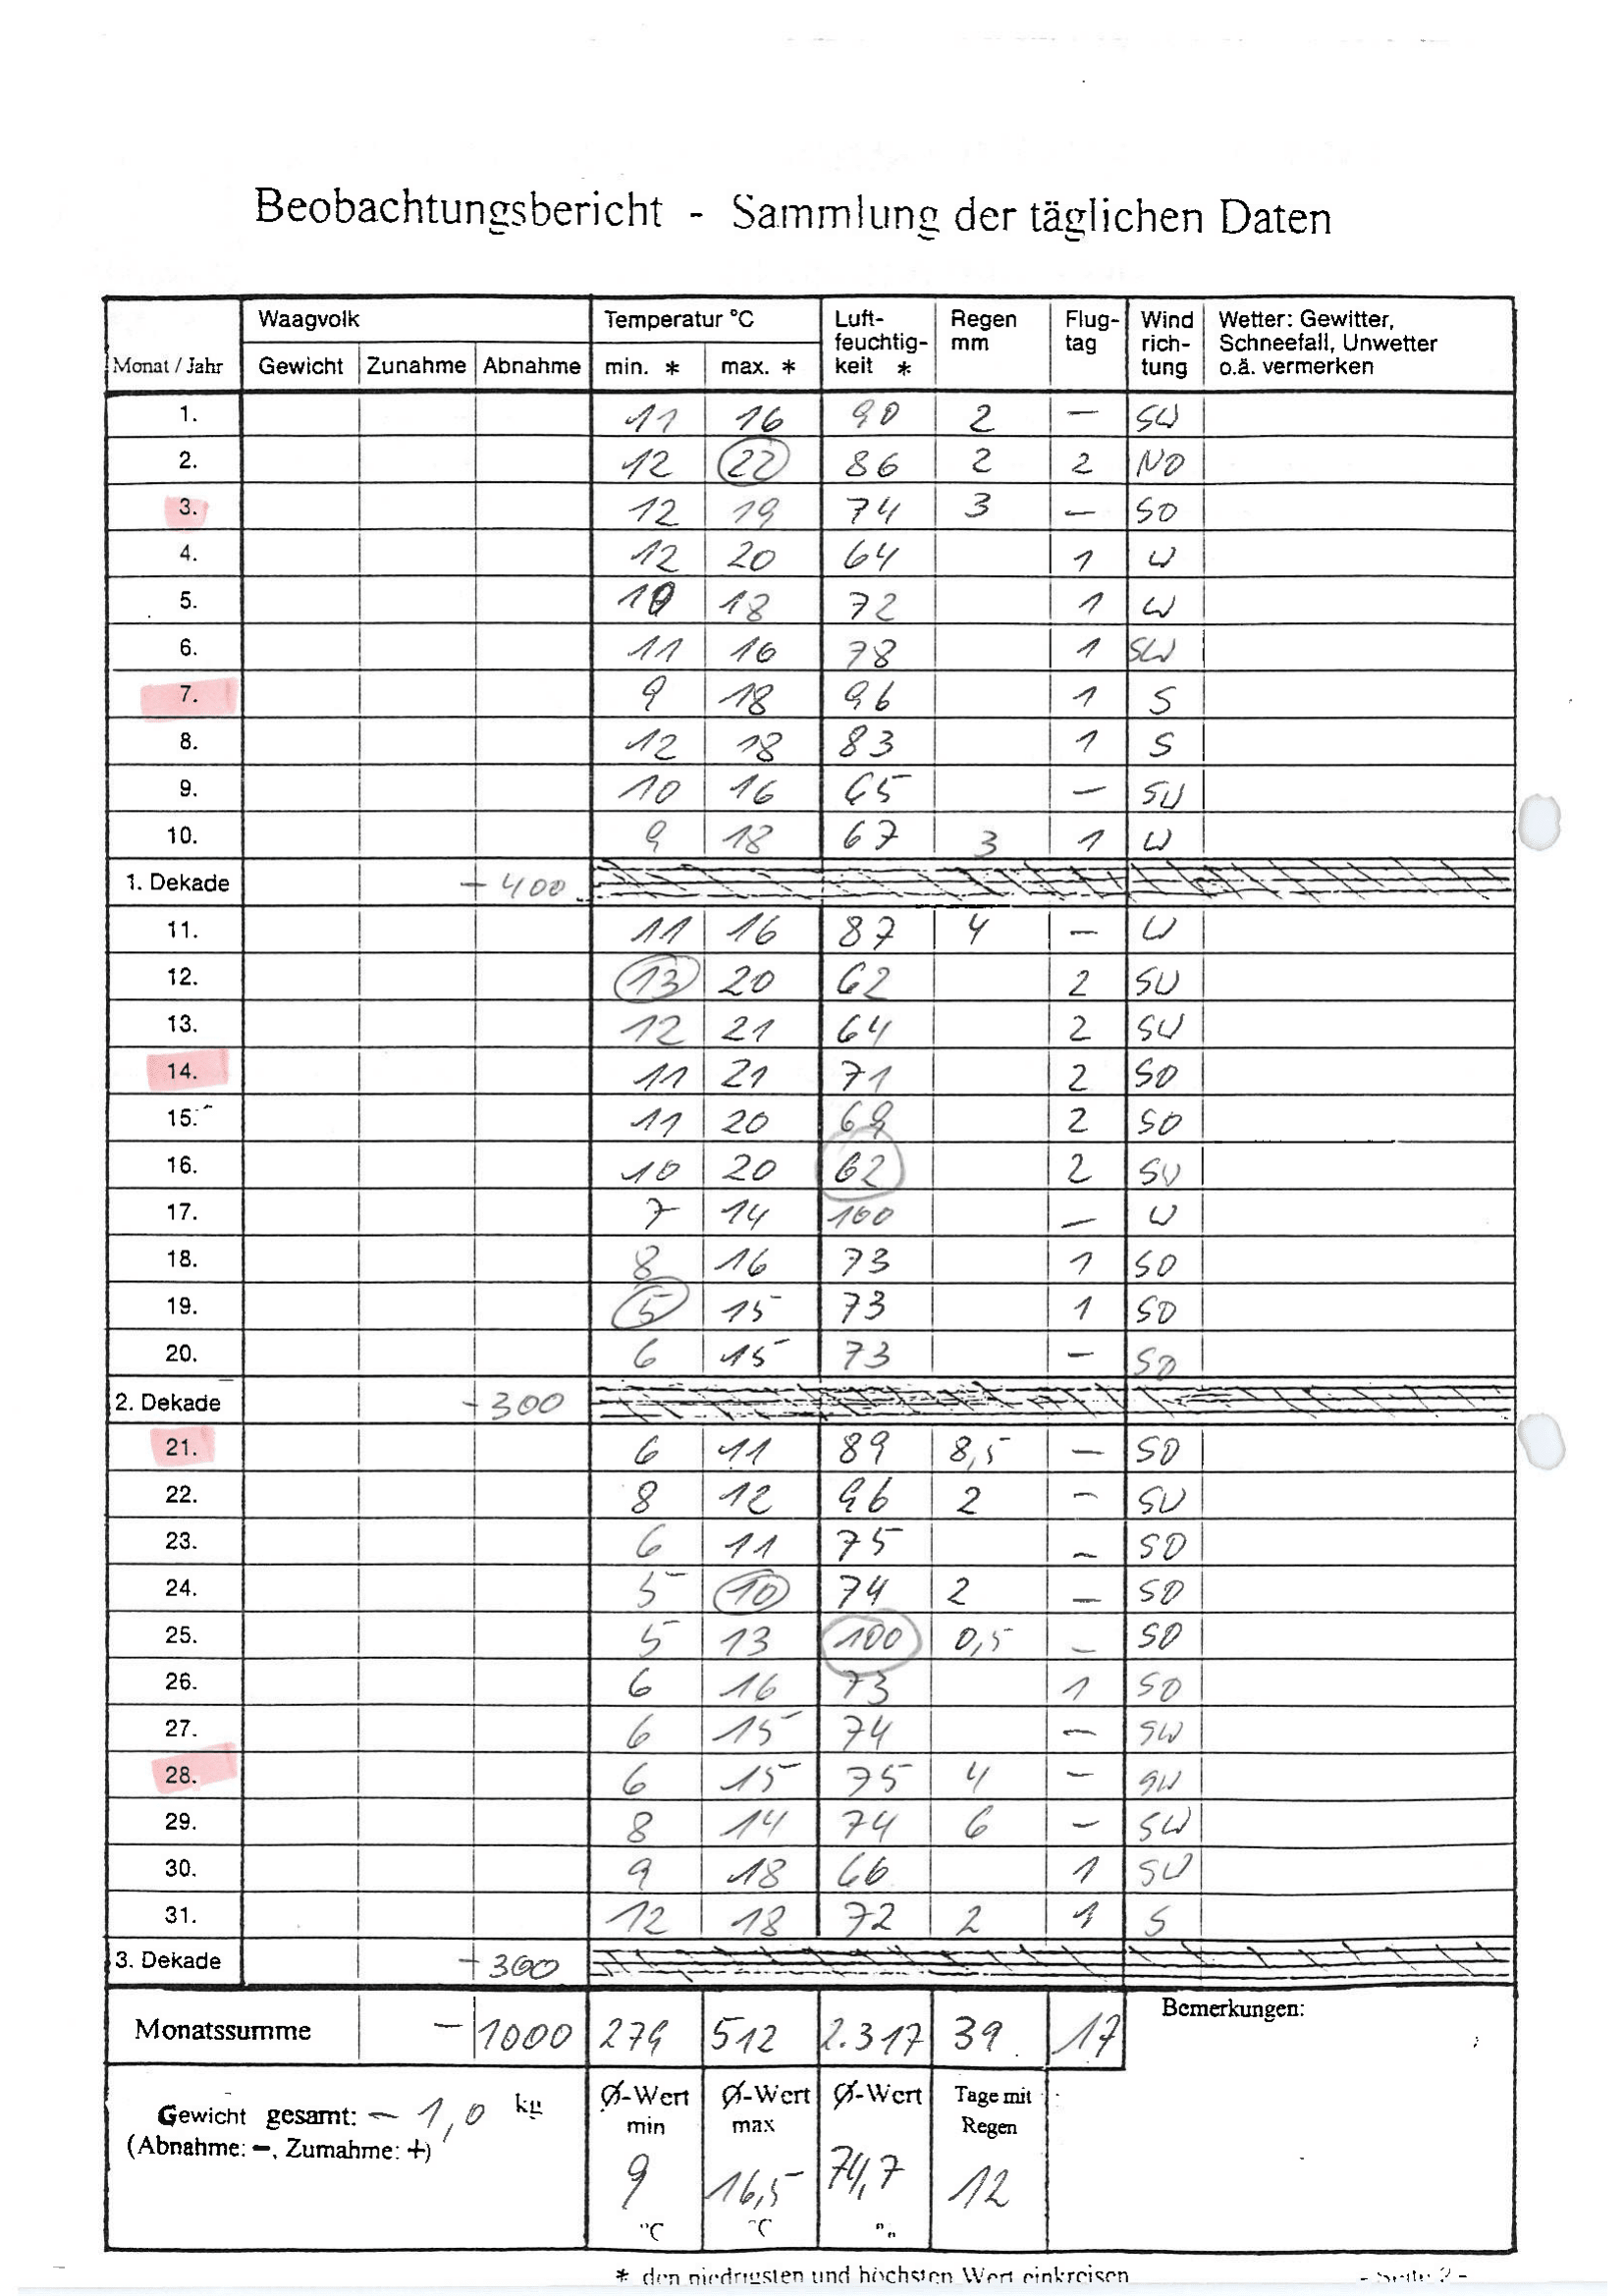 Beobachtungsbericht - Sammlung der täglichen Daten
Monat / Jahr Waagvolk Gewicht Zunahme Abnahme Temperatur °C min. * max. * Luft-feuchtig-keit * Regen mm Flug-tag Wind rich-tung Wetter: Gewitter, Schneefall, Unwetter o.ä. vermerken
1. 11 16 90 2 – SW
2. 12 22 86 2 2 NO
3. 12 19 74 3 – SO
4. 12 20 64 1 W
5. 10 18 72 1 W
6. 11 16 78 1 SW
7. 9 18 96 1 S
8. 12 18 83 1 S
9. 10 16 65 – SW
10. 9 18 67 3 1 W
1. Dekade - 400
11. 11 16 87 4 – W
12. 13 20 62 2 SW
13. 12 21 64 2 SW
14. 11 21 71 2 SO
15. 11 20 69 2 SO
16. 10 20 62 2 SW
17. 7 14 100 – W
18. 8 16 73 1 SO
19. 5 15 73 1 SO
20. 6 15 73 – SO
2. Dekade - 300
21. 6 11 89 8,5 – SO
22. 8 12 96 2 – SW
23. 6 11 75 – SO
24. 5 10 74 2 – SO
25. 5 13 100 0,5 – SO
26. 6 16 73 1 SO
27. 6 15 74 – SW
28. 6 15 75 4 – SW
29. 8 14 74 6 – SW
30. 9 18 66 1 SW
31. 12 18 72 2 1 S
3. Dekade - 300
Monatssumme – 1000 279 512 2.317 39 17 Bemerkungen:
Gewicht gesamt: – 1,0 kg
(Abnahme: –, Zumahme: +)
Ø-Wert min Ø-Wert max Ø-Wert Tage mit Regen
9 16,5 74,7 12
°C °C
* den niedrigsten und höchsten Wert einkreisen - Seite 2 -